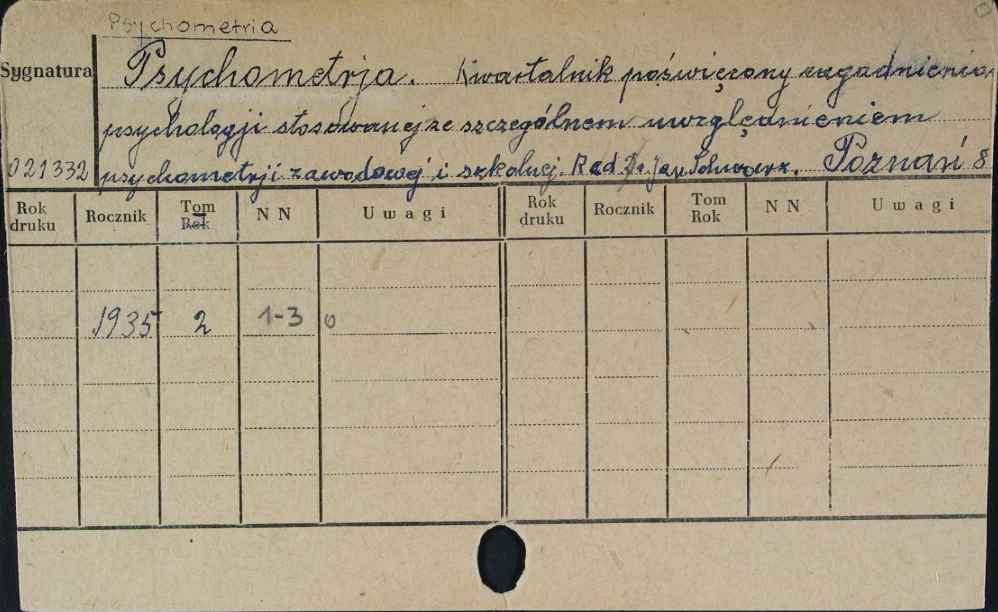 Psychometria
Sygnatura
Psychometrja. Kwartalnik poświęcony zagadnieniom
psychologji stosowanej ze szczególnem uwzględnieniem
021332 psychometrji zawodowej i szkolnej. Red. Dr. Jan Poznań 8
Rok druku Rocznik Tom Rok NN Uwagi Rok druku Rocznik Tom Rok NN Uwagi
1935 2 1-3 0